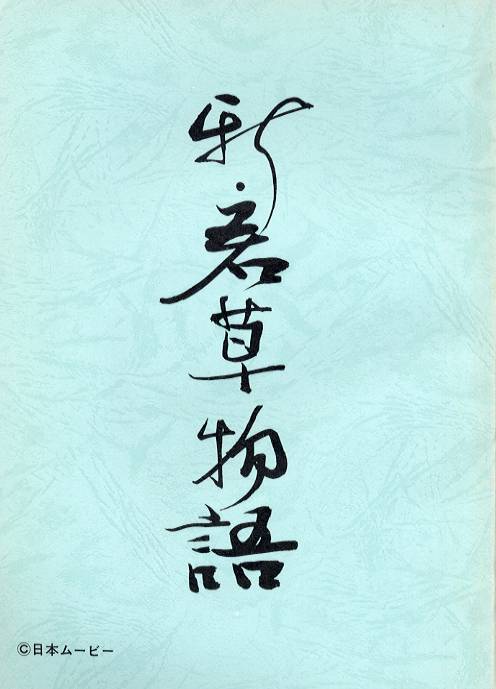 新・若草物語
©日本ムービー